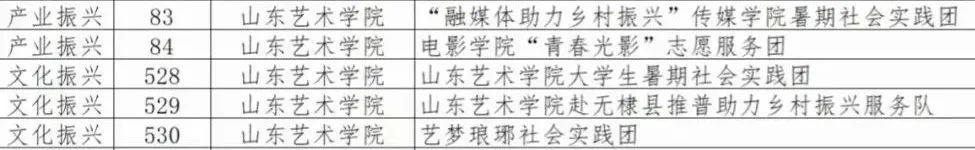 产业振兴 83 山东艺术学院 “融媒体助力乡村振兴”传媒学院暑期社会实践团
产业振兴 84 山东艺术学院 电影学院“青春光影”志愿服务团
文化振兴 528 山东艺术学院 山东艺术学院大学生暑期社会实践团
文化振兴 529 山东艺术学院 山东艺术学院赴无棣县推普助力乡村振兴服务队
文化振兴 530 山东艺术学院 艺梦琅琊社会实践团